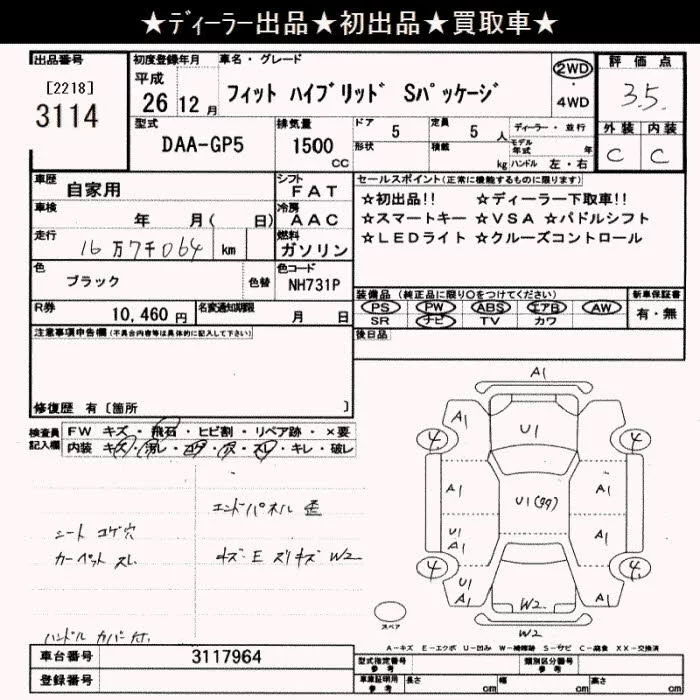 ★ディーラー出品★初出品★買取車★
出品番号
[2218]
3114
初度登録年月
平成
26 12 月
車名・グレード
フィット ハイブリッド Sパッケージ
2WD
・
4WD
評価点
3.5
外装 内装
C C
型式
DAA-GP5
排気量
1500
CC
ドア
5
定員
5 人
形状
積載
kg
ディーラー・並行
モデル
年式 年
ハンドル 左・右
車歴
自家用
車検
年 月( 日)
走行
16万7千064 km
シフト
FAT
冷房
AAC
燃料
ガソリン
セールスポイント(正常に機能するものに限ります)
☆初出品!! ☆ディーラー下取車!!
☆スマートキー ☆VSA ☆パドルシフト
☆LEDライト ☆クルーズコントロール
色
ブラック
色替
色コード
NH731P
R券
10,460 円
名変通知期限
月 日
装備品(純正品に限り○をつけてください)
PS PW ABS エアB AW
SR ナビ TV カワ
新車保証書
有・無
後日品
注意事項申告欄(不具合内容等は具体的に記入して下さい)
修復歴 有〔箇所 〕
検査員
記入欄
FW キズ・飛石・ヒビ割・リペア跡・×要
内装 キズ・汚レ・コゲ・穴・スレ・キレ・破レ
シート コゲ穴
カーペット スレ
エンドパネル 歪
キズ・E スリキズ W2
ハンドル カバー付.
A1
A1 U1 A1
4 4
A1 U1(99) A1
U1
A1 A1
4 4
U1
A1 W2 A1
W2
スペア
A-キズ E-エクボ U-凹み W-補修跡 S-サビ C-腐食 XX-交換済
車台番号
3117964
登録番号
型式指定番号
参考
類別区分番号
参考
車庫証明用
参考
長さ cm 幅 cm 高さ cm